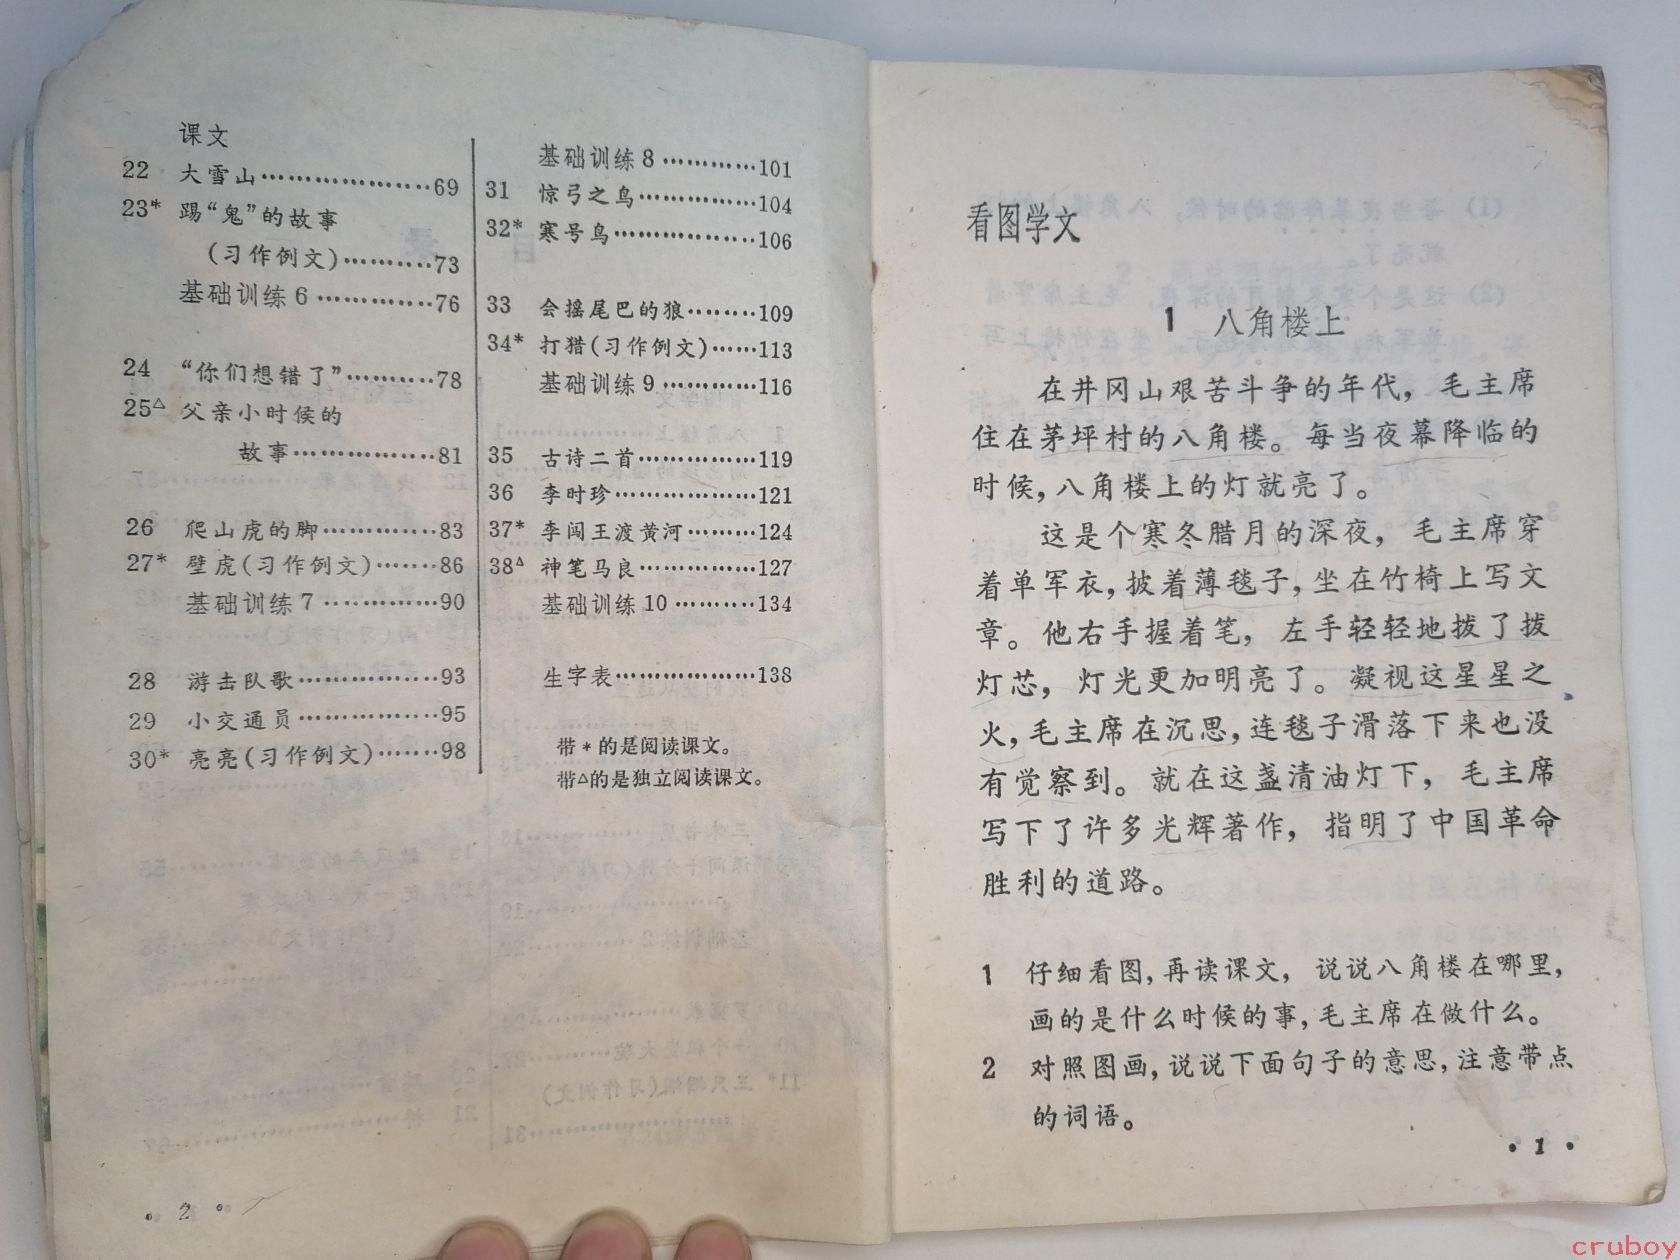 课文
22 大雪山…………………69
23* 踢“鬼”的故事
(习作例文)…………73
基础训练6……………76
24 “你们想错了”…………78
25△ 父亲小时候的
故事………………81
26 爬山虎的脚……………83
27* 壁虎(习作例文)………86
基础训练7……………90
28 游击队歌………………93
29 小交通员………………95
30* 亮亮(习作例文)………98
基础训练8…………101
31 惊弓之鸟……………104
32* 寒号鸟………………106
33 会摇尾巴的狼………109
34* 打猎(习作例文)……113
基础训练9…………116
35 古诗二首……………119
36 李时珍………………121
37* 李闯王渡黄河………124
38△ 神笔马良……………127
基础训练10…………134
生字表………………138
带*的是阅读课文。
带△的是独立阅读课文。
·2·
看图学文
1 八角楼上
在井冈山艰苦斗争的年代，毛主席
住在茅坪村的八角楼。每当夜幕降临的
时候，八角楼上的灯就亮了。
这是个寒冬腊月的深夜，毛主席穿
着单军衣，披着薄毯子，坐在竹椅上写文
章。他右手握着笔，左手轻轻地拨了拨
灯芯，灯光更加明亮了。凝视这星星之
火，毛主席在沉思，连毯子滑落下来也没
有觉察到。就在这盏清油灯下，毛主席
写下了许多光辉著作，指明了中国革命
胜利的道路。
1 仔细看图，再读课文，说说八角楼在哪里，
画的是什么时候的事，毛主席在做什么。
2 对照图画，说说下面句子的意思，注意带点
的词语。
·1·
cruboy